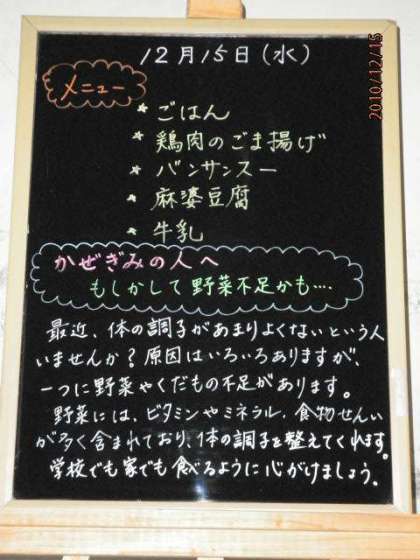 12月15日(水)
2010/12/15
メニュー
★ごはん
★鶏肉のごま揚げ
★バンサンスー
★麻婆豆腐
★牛乳
かぜぎみの人へ
もしかして野菜不足かも….
最近、体の調子があまりよくないという人
いませんか?原因はいろいろありますが、
一つに野菜やくだもの不足があります。
野菜には、ビタミンやミネラル、食物せんい
が多く含まれており、体の調子を整えてくれます。
学校でも家でも食べるように心がけましょう。